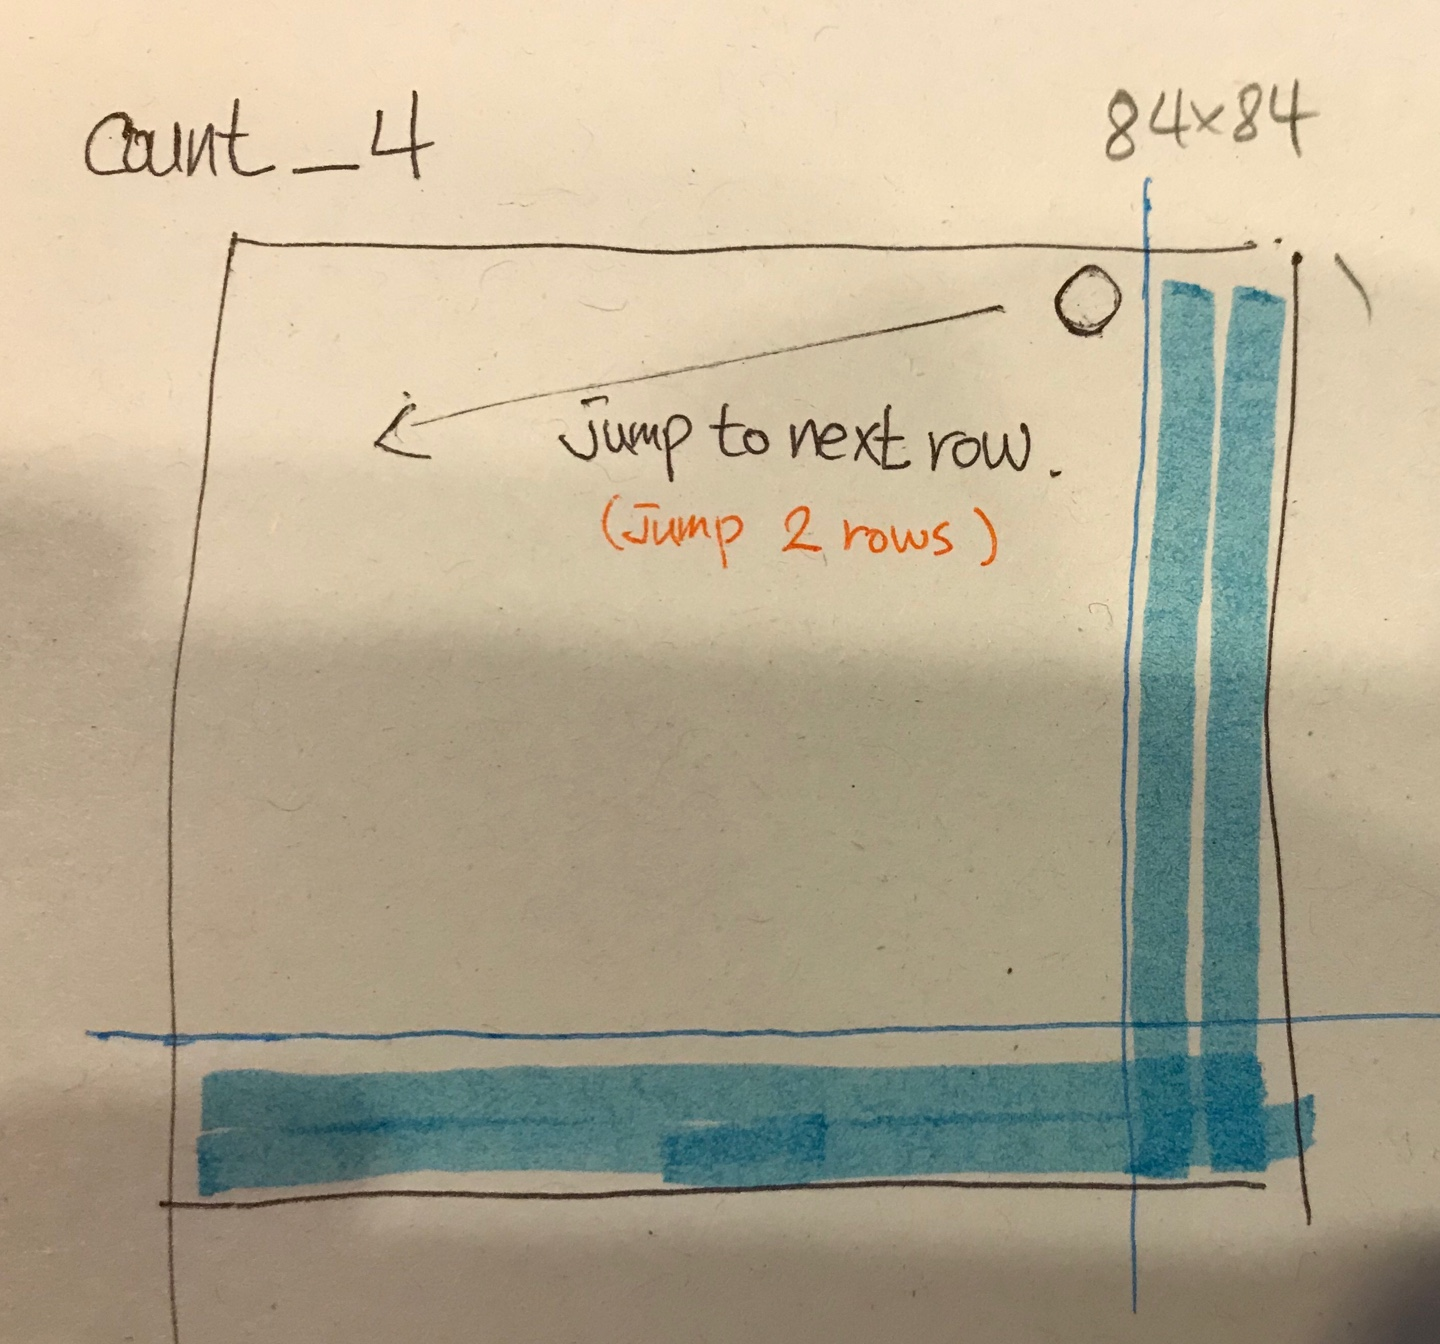 count_4
84x84
Jump to next row.
(Jump 2 rows)